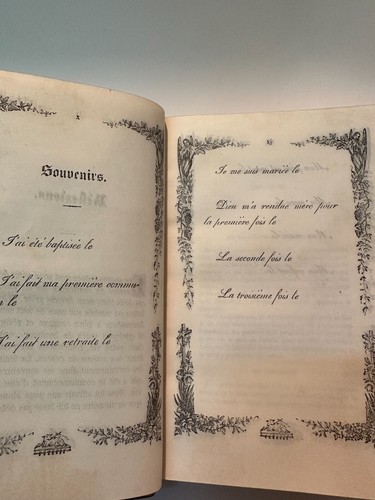 x
Souvenirs.
J'ai été baptisée le
J'ai fait ma première commu-
n le
J'ai fait une retraite le
xj
Je me suis mariée le
Dieu m'a rendue mère pour
la première fois le
La seconde fois le
La troisième fois le